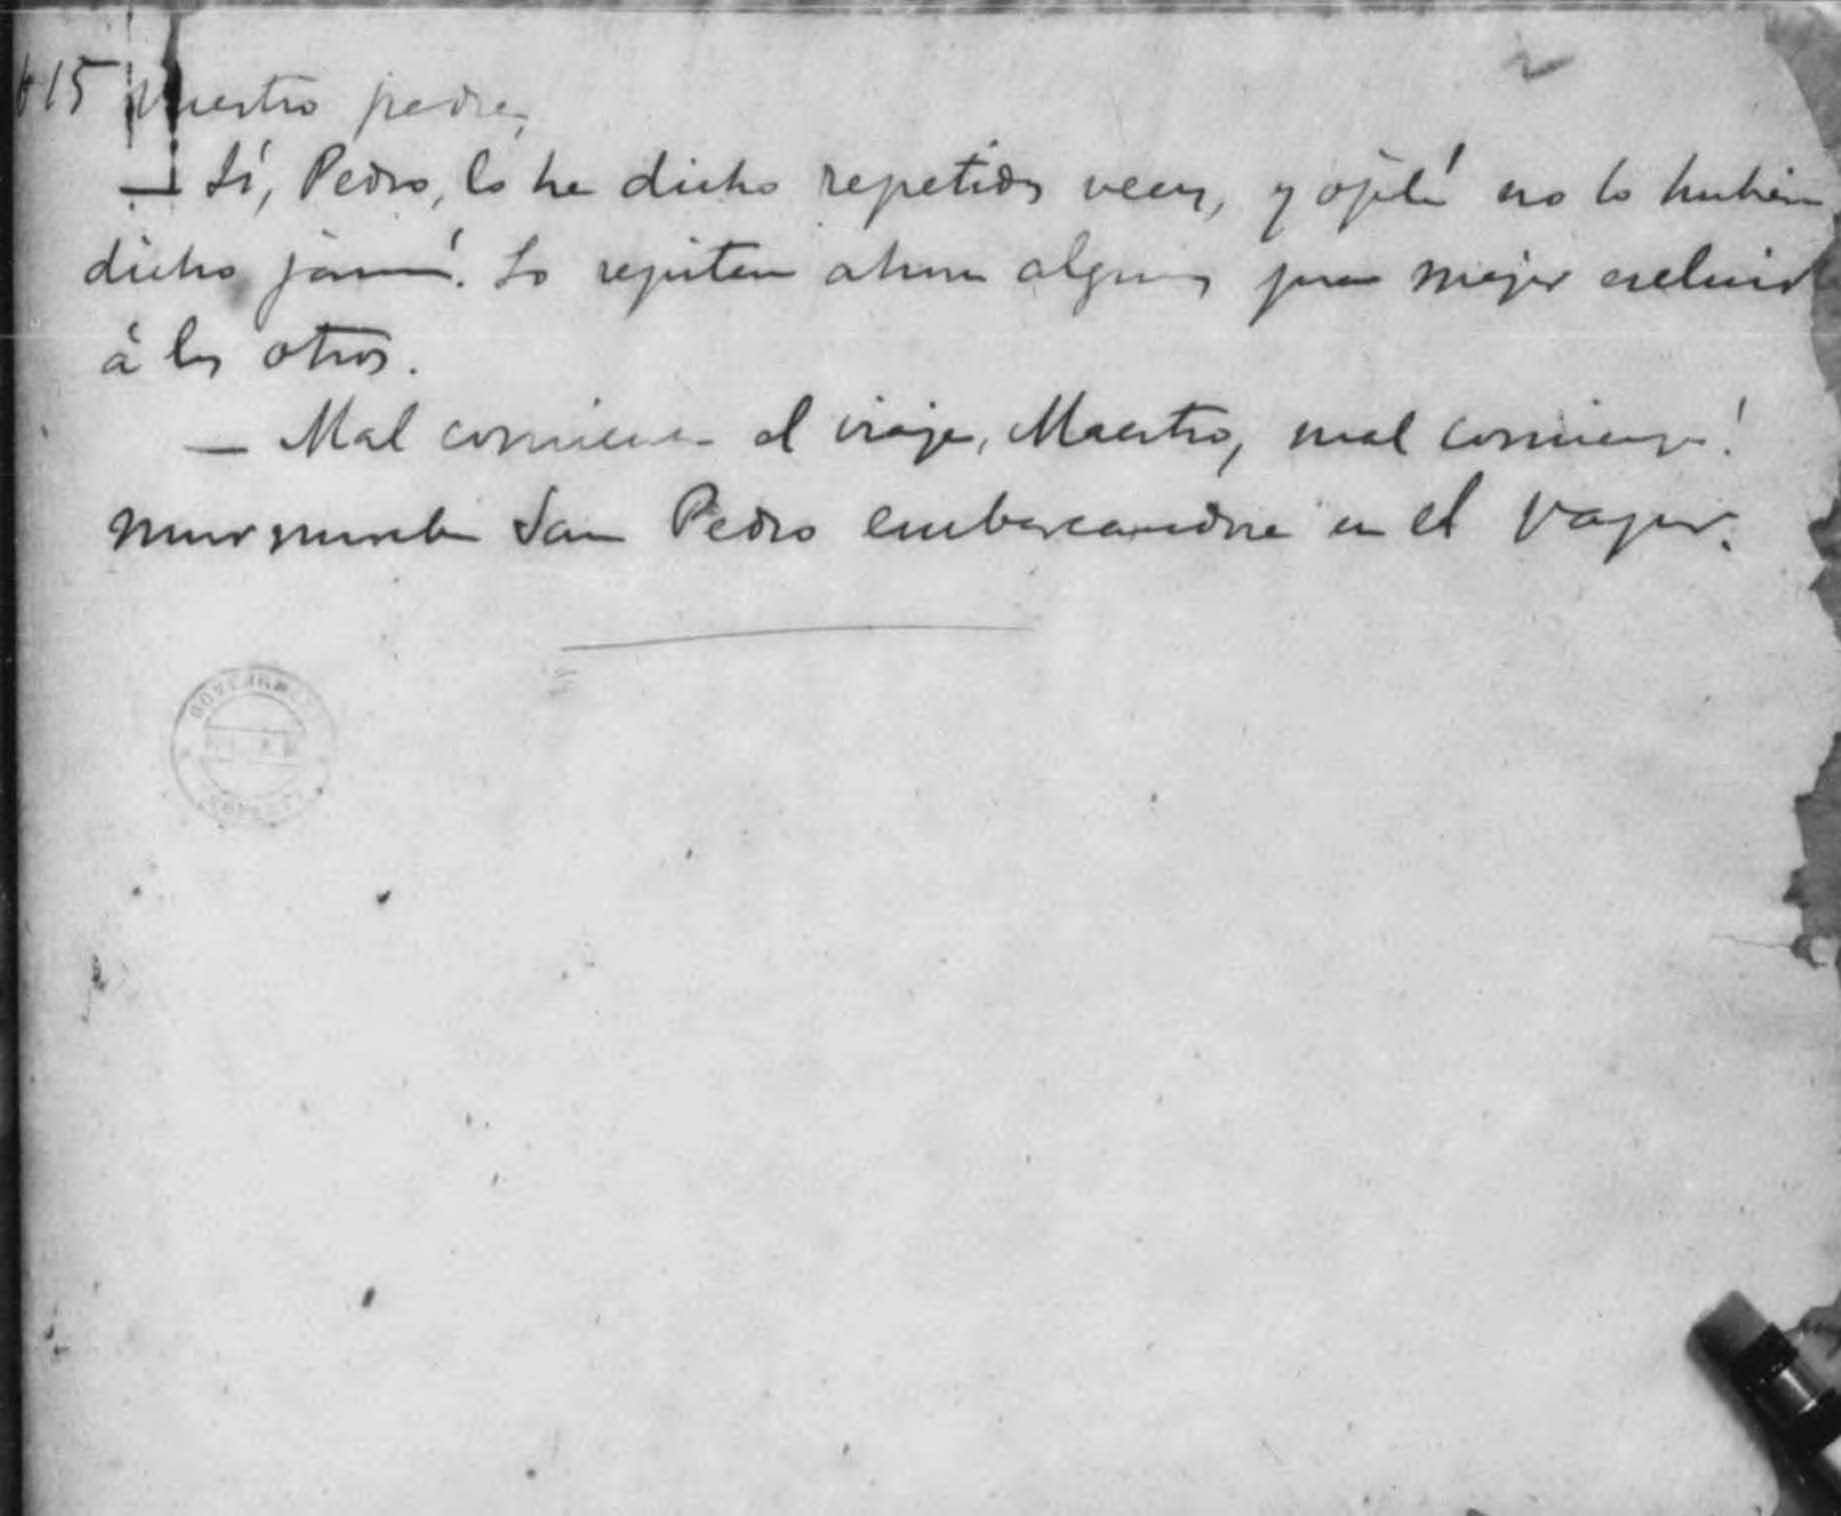 615 Nuestro padre,
— Sí, Pedro, lo he dicho repetidas veces, y ojalá no lo hubiera
dicho jamás. Lo repiten ahora algunos para mejor excluir
á los otros.
— Mal comienza el viaje, Maestro, mal comienza!
murmuraba San Pedro embarcandose en el vapor.